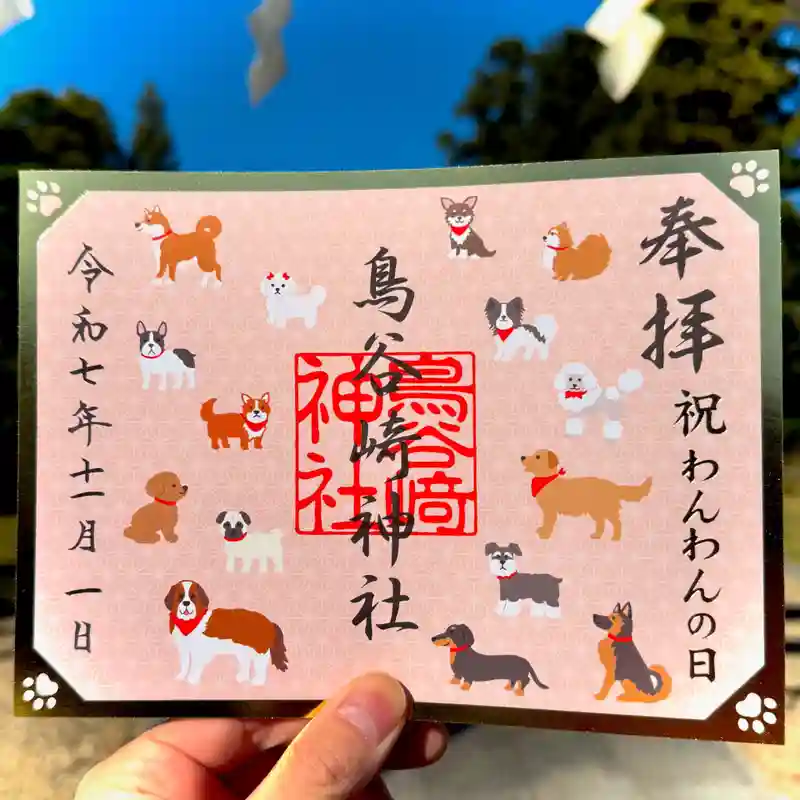 奉拝
祝わんわんの日
鳥谷崎神社
鳥谷﨑神社
令和七年十一月一日